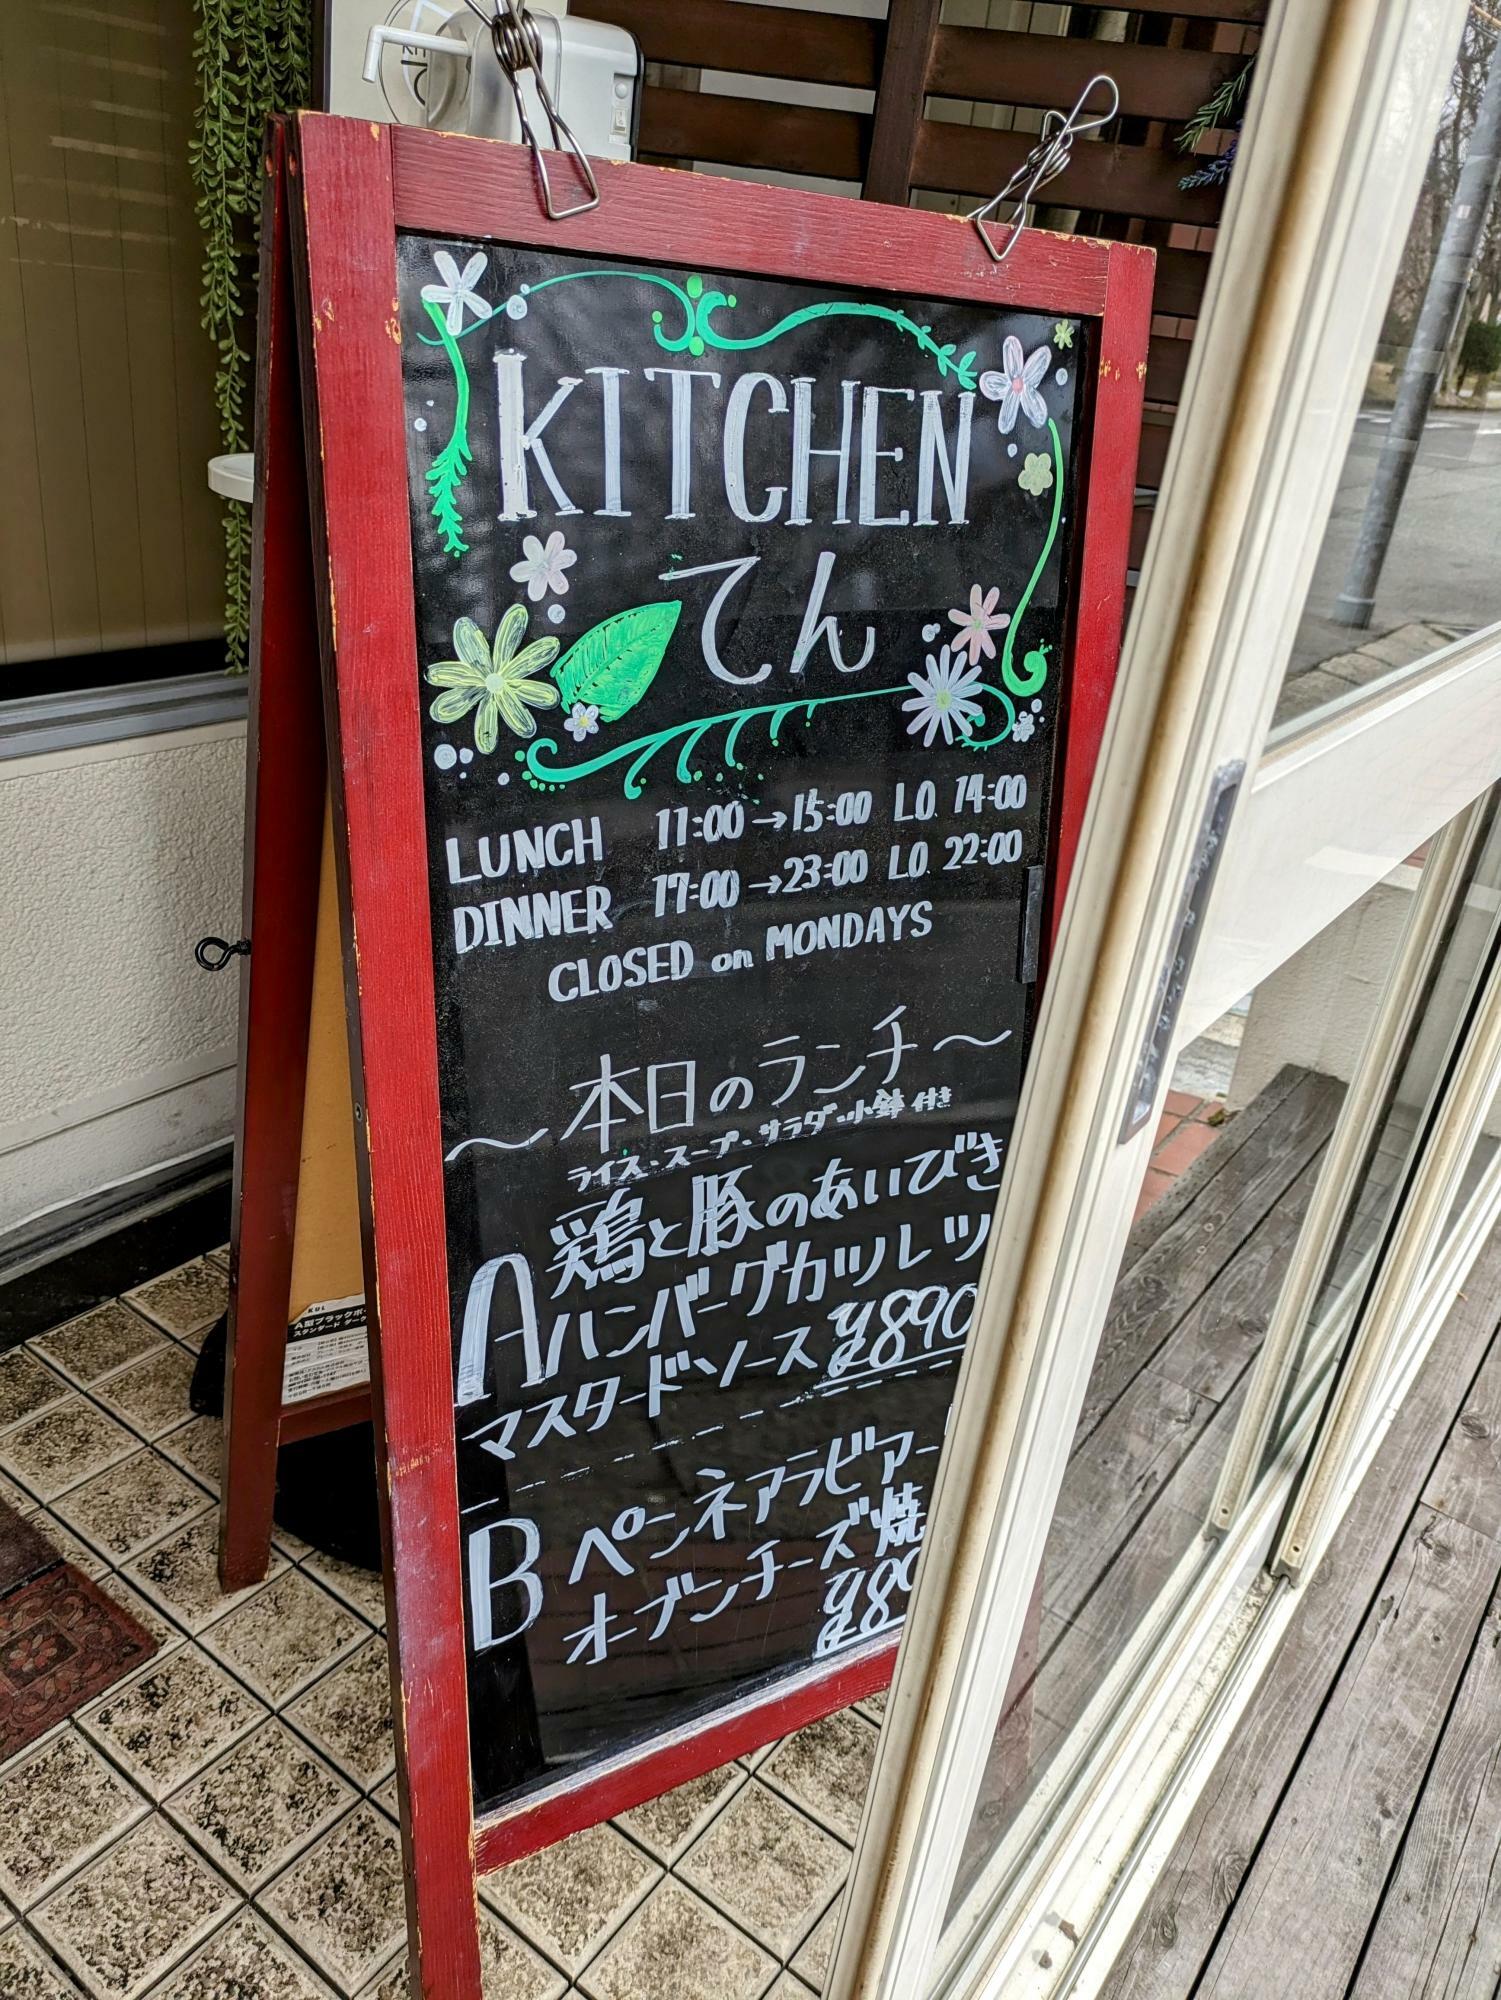 KITCHEN
てん
LUNCH 11:00→15:00 L.O. 14:00
DINNER 17:00→23:00 L.O. 22:00
CLOSED on MONDAYS
〜本日のランチ〜
ライス・スープ・サラダ・小鉢付き
A 鶏と豚のあいびき
ハンバーグカツレツ
マスタードソース ¥890
B ペンネアラビアー
オーブンチーズ焼
¥89
KUL
A型ブラックボ
スタンダード ダーク